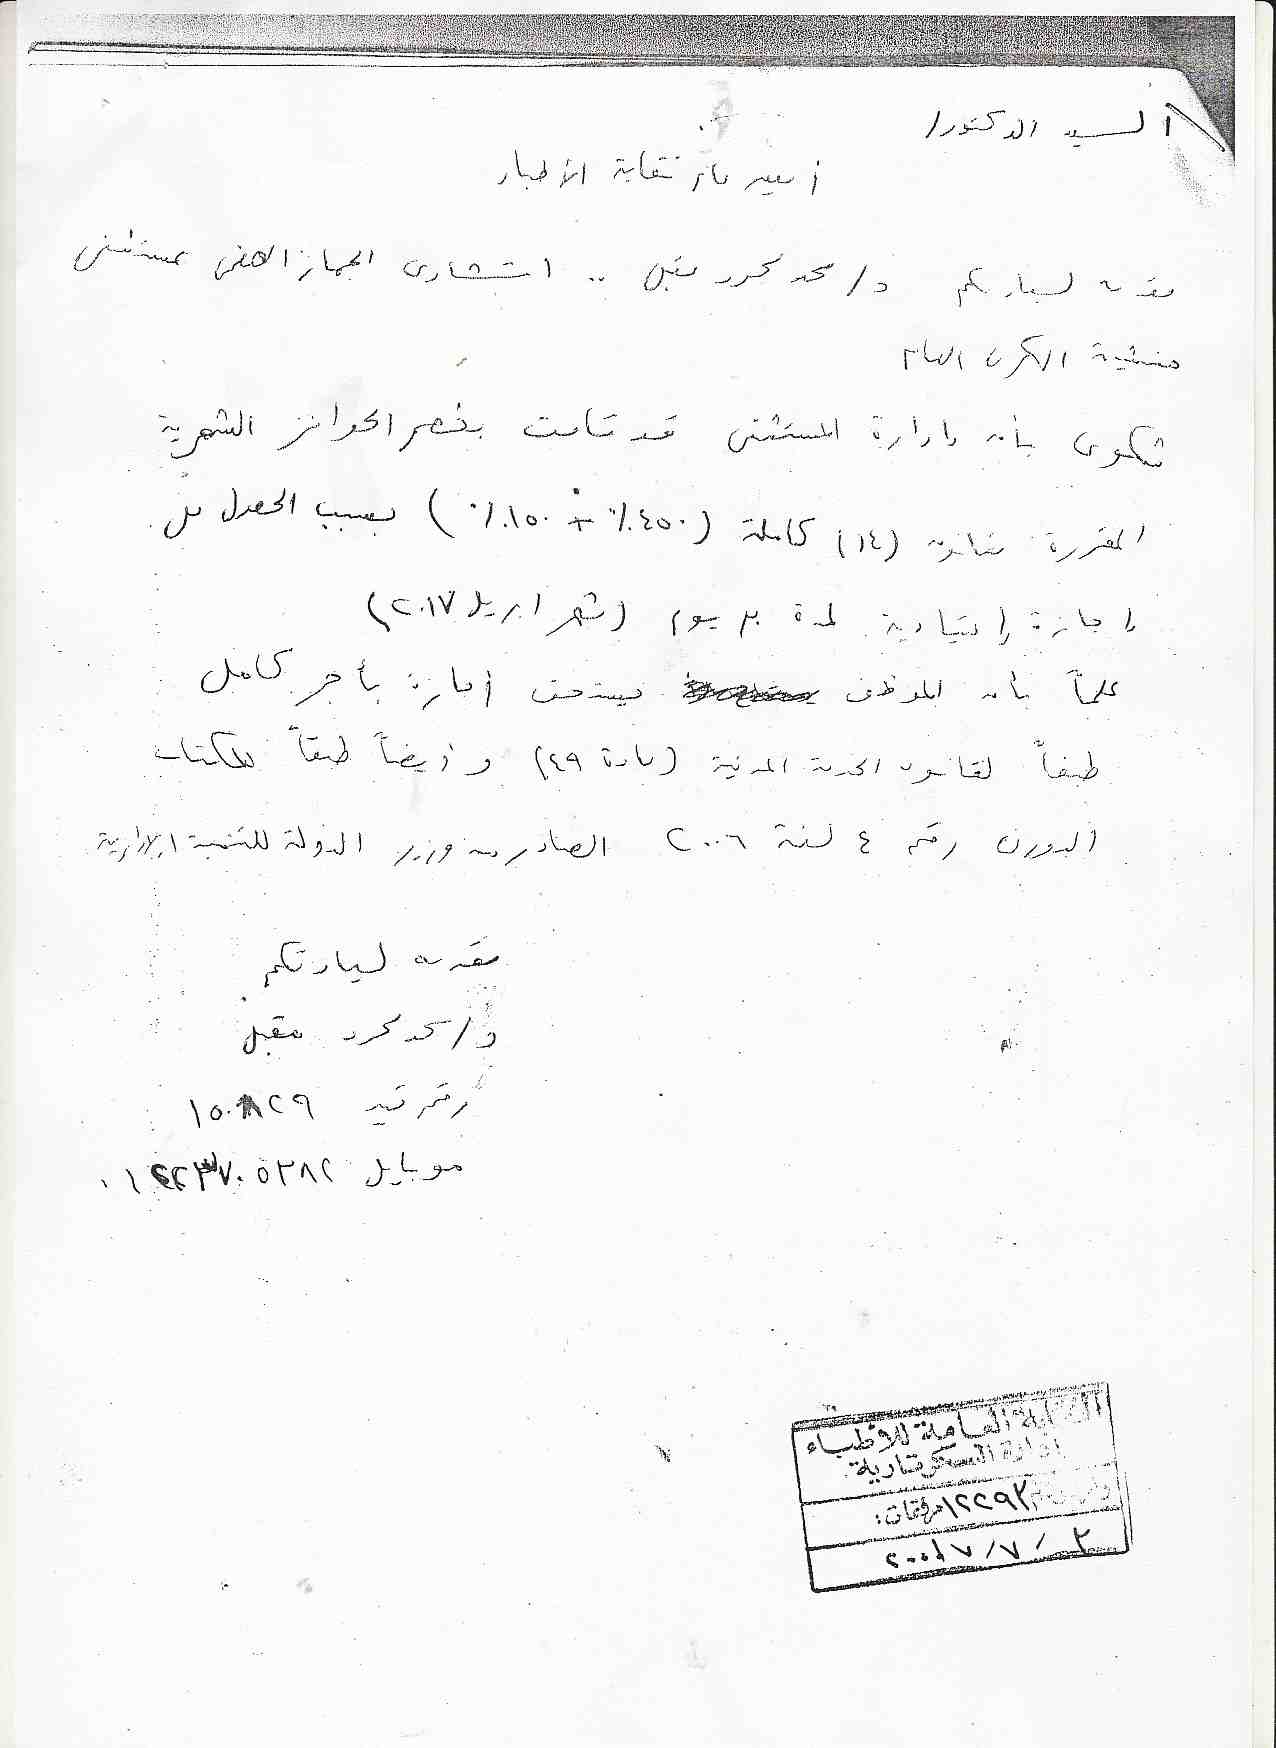 السيد الدكتور/
أمين عام نقابة الأطباء
مقدمه لسيادتكم د/ محمد محمود مقبل .. استشارى الجهاز الهضمى بمستشفى
منشية البكرى العام
شكوى بأن إدارة المستشفى قد قامت بخصم الحوافز الشهرية
المقررة قانون (١٤) كاملة (٤٥٠٪ + ١٥٠٪) بسبب الحصول على
إجازة إعتيادية لمدة ٣٠ يوم (شهر ابريل ٢٠١٧)
علماً بأن الموظف يستحق أجازة بأجر كامل
طبقاً لقانون الخدمة المدنية (مادة ٤٩) وأيضاً طبقاً للكتاب
الدورى رقم ٤ لسنة ٢٠٠٦ الصادر من وزير الدولة للتنمية الإدارية
مقدمه لسيادتكم
د/ محمد محمود مقبل
رقم قيد ١٥٠٨٢٩
موبايل
النقابة العامة للأطباء
إدارة السكرتارية
مرفقات: